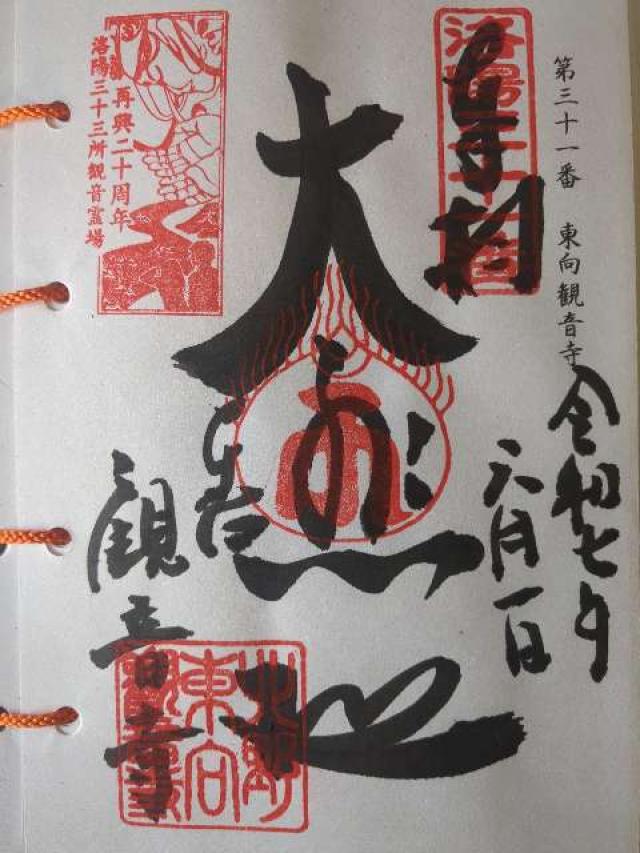 第三十一番 東向観音寺
令和七年
六月一日
奉拝
洛陽三十一番
大悲
観音寺
再興二十周年
洛陽三十三所観音霊場
北野
東向